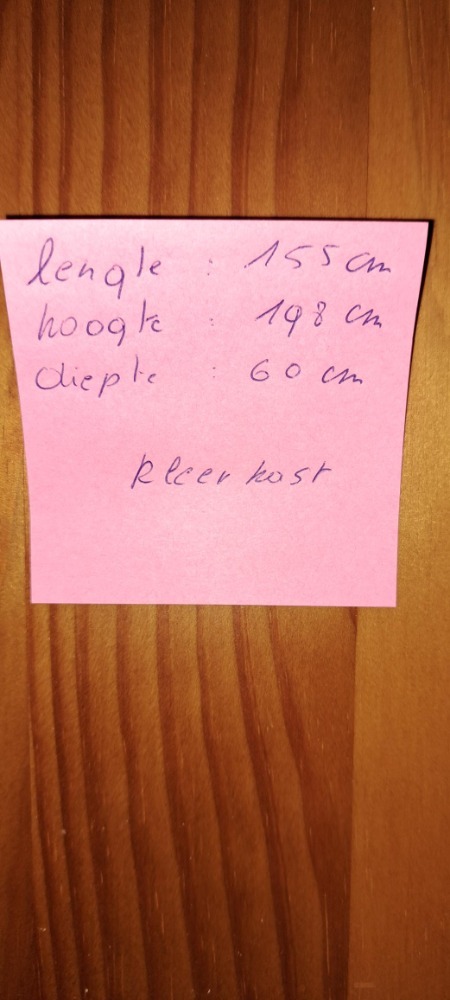 lengte : 155 cm
hoogte : 198 cm
diepte : 60 cm
kleerkast